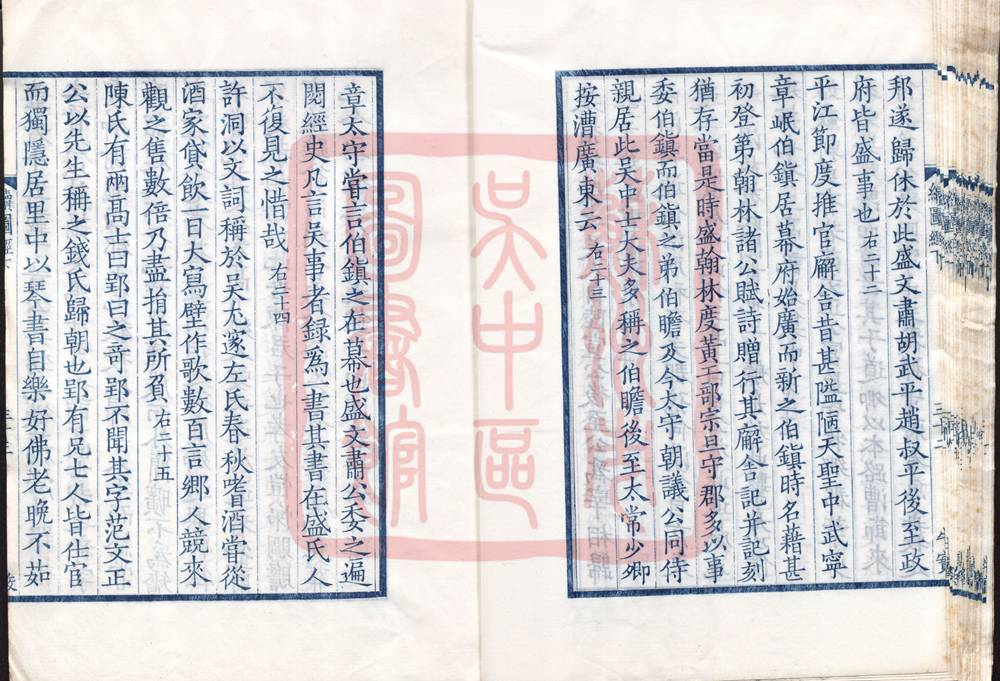 邦遂歸休於此盛文肅胡武平趙叔平後至政
府皆盛事也右二十二
平江節度推官廨舍昔甚隘陋天聖中武寧
章岷伯鎮居幕府始廣而新之伯鎮時名藉甚
初登第翰林諸公賦詩贈行其廨舍記并記刻
猶存當是時盛翰林度黃工部宗旦守郡多以事
委伯鎮而伯鎮之弟伯瞻及今太守朝議公同侍
親居此吳中士大夫多稱之伯瞻後至太常少卿
按漕廣東云右二十三
章太守甞言伯鎮之在幕也盛文肅公委之遍
閱經史凡言吳事者録爲一書其書在盛氏人
不復見之惜哉右二十四
許洞以文詞稱於吳尤邃左氏春秋嗜酒甞從
酒家貸飲一日大寫壁作歌數百言鄉人競來
觀之售數倍乃盡捐其所負右二十五
陳氏有兩高士曰郢曰之奇郢不聞其字范文正
公以先生稱之錢氏歸朝也郢有兄七人皆仕宦
而獨隱居里中以琴書自樂好佛老晚不茹
蘇州市
吳中區
圖書館